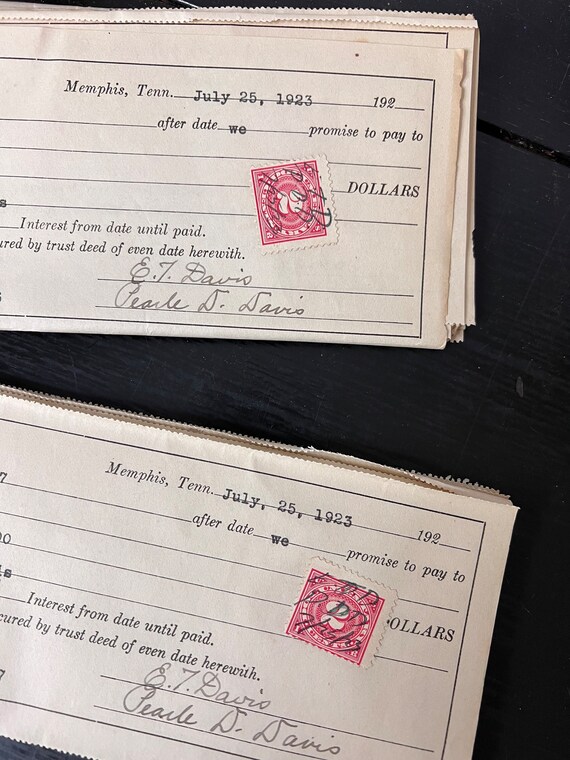 Memphis, Tenn. July 25, 1923 192
after date we promise to pay to
DOLLARS
s
Interest from date until paid.
ured by trust deed of even date herewith.
E. T. Davis
Pearle D. Davis
2
Memphis, Tenn. July, 25, 1923 192
7
after date we promise to pay to
00
OLLARS
ls
Interest from date until paid.
cured by trust deed of even date herewith.
E. T. Davis
7
Pearle D. Davis
2